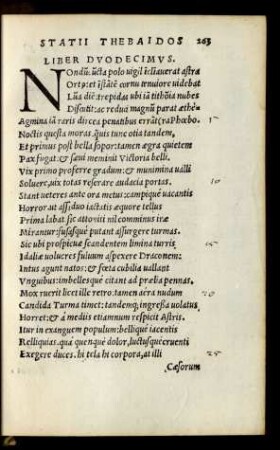 STATII THEBAIDOS 263
LIBER DVODECIMVS.
NOndũ cũcta polo uigil ĩclinauerat astra
Ortꝰ; et ĩstãtẽ cornu tenuiore uidebat
Lũa diẽ: trepidas ubi iã tithõia nubes
Discutit; ac reduci magnũ parat æthe⸗
Agmina iã raris circea penatibus errãt (ra Phœbo.
Noctis questa moras. quis tunc otia tandem,
Et primus post bella sopor: tamen ægra quietem
Pax fugat: & sæui meminit Victoria belli.
Vix primo proferre gradum: & munimina ualli
Soluere, uix totas reserare audacia portas. 10
Stant ueteres ante ora metus: campiq; uacantis
Horror. ut assiduo iactatis æquore tellus
Prima labat: sic attoniti nil comminus iræ
Mirantur: fusasq; putant assurgere turmas.
Sic ubi prospicuæ scandentem limina turris 15
Idaliæ uolucres fuluum aspexere Draconem:
Intus agunt natos: & fœta cubilia uallant
Vnguibus: imbellesq; citant ad prælia pennas.
Mox ruerit licet ille retro: tamen aëra nudum
Candida Turma timet: tandemq; ingressa uolatus 20
Horret: & à mediis etiamnum respicit Astris.
Itur in exanguem populum: belliq; iacentis
Relliquias. quà quenque dolor, luctusq; cruenti
Exegere duces. hi tela hi corpora, at illi 25
Cæsorum